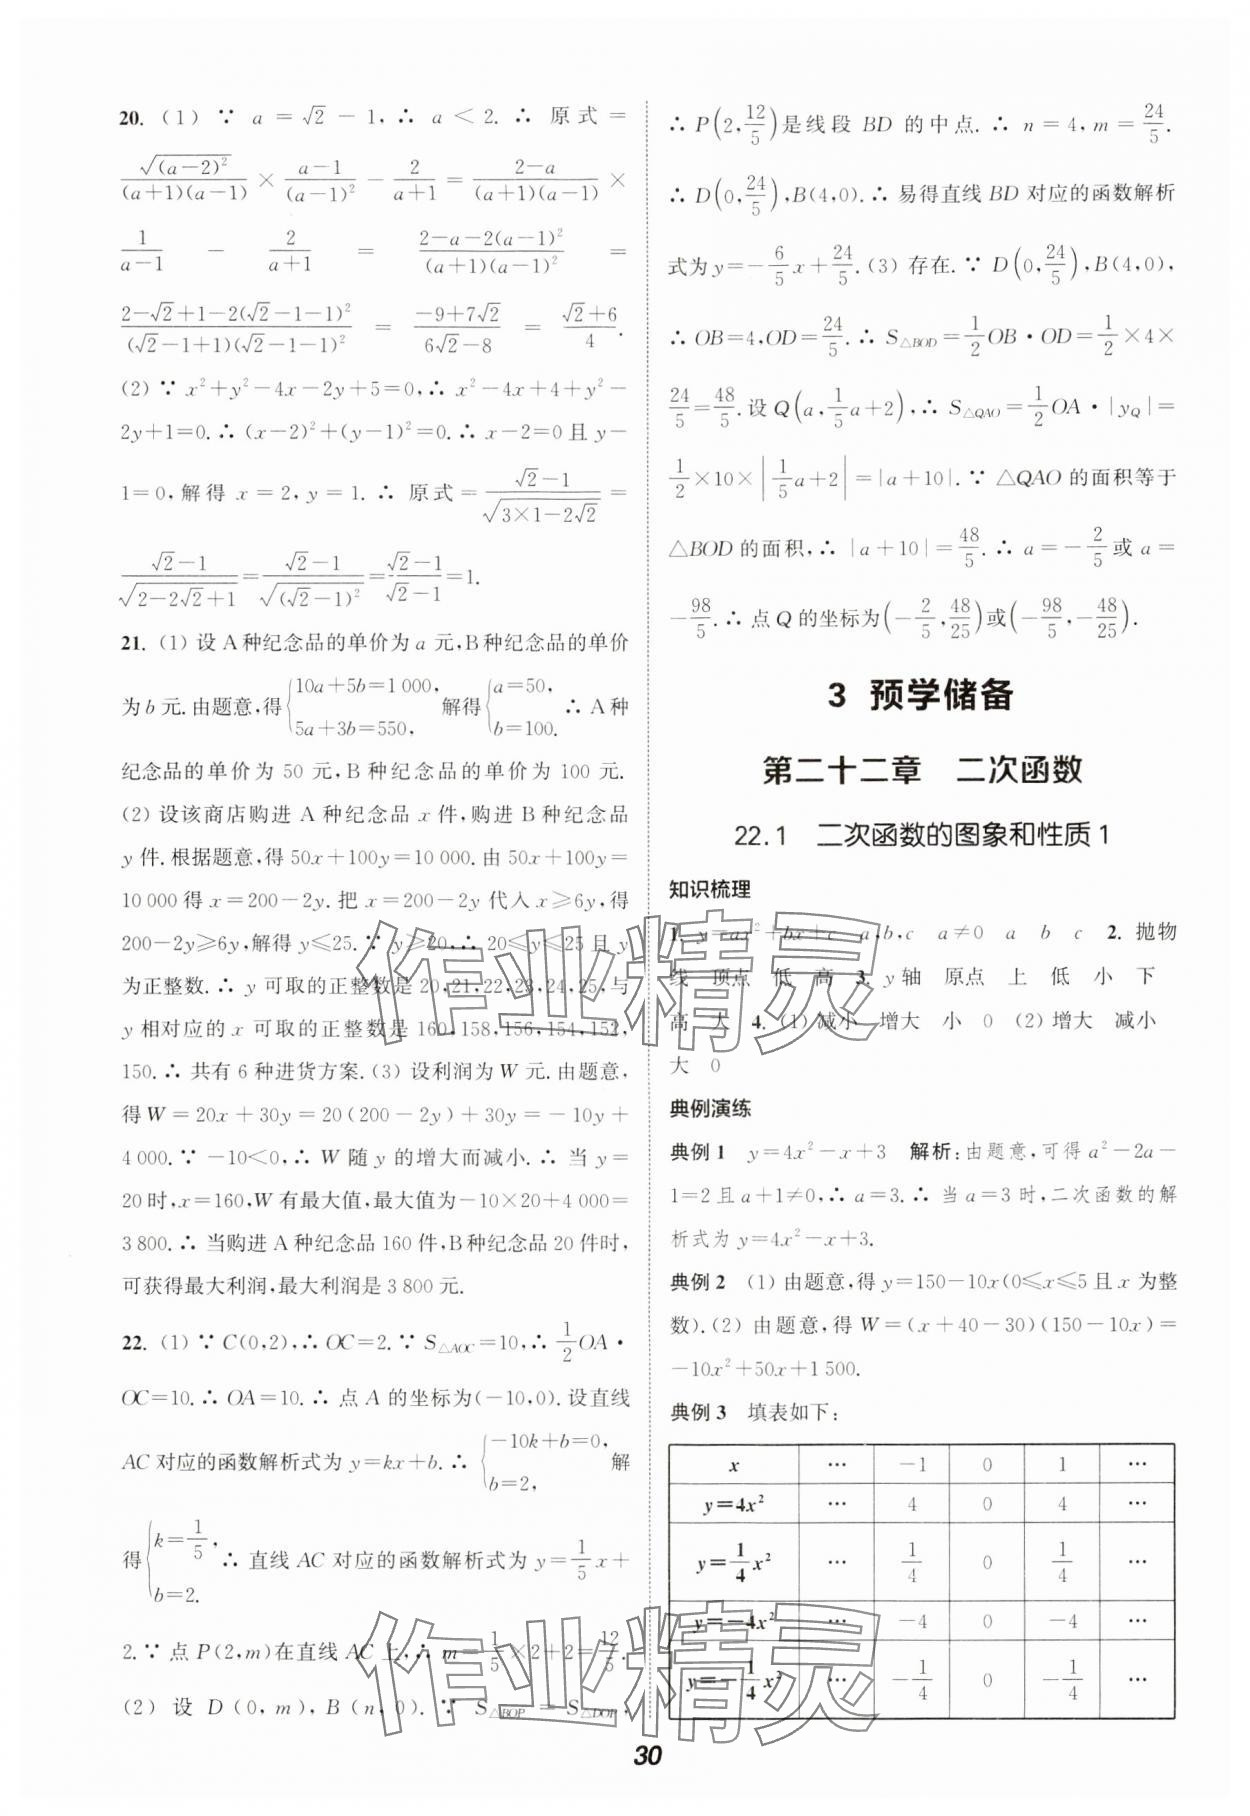 20. (1) ∵ a=√2-1,∴ a<2.∴ 原式=
√((a-2)²)/((a+1)(a-1)) × (a-1)/(a-1)² - 2/(a+1) = (2-a)/((a+1)(a-1)) ×
1/(a-1) - 2/(a+1) = (2-a-2(a-1)²)/((a+1)(a-1)²) =
(2-√2+1-2(√2-1-1)²)/((√2-1+1)(√2-1-1)²) = (-9+7√2)/(6√2-8) = (√2+6)/4.
(2) ∵ x²+y²-4x-2y+5=0,∴ x²-4x+4+y²-
2y+1=0.∴ (x-2)²+(y-1)²=0.∴ x-2=0且y-
1=0,解得 x=2,y=1.∴ 原式=(√2-1)/√(3×1-2√2)=
(√2-1)/√(2-2√2+1)=(√2-1)/√((√2-1)²)=(√2-1)/(√2-1)=1.
21. (1) 设A种纪念品的单价为a元,B种纪念品的单价
为b元.由题意,得{10a+5b=1 000, 5a+3b=550, 解得{a=50, b=100. ∴ A种
纪念品的单价为 50 元,B种纪念品的单价为 100 元.
(2) 设该商店购进 A 种纪念品 x 件,购进 B 种纪念品
y件.根据题意,得50x+100y=10 000.由50x+100y=
10 000得x=200-2y.把x=200-2y代入x≥6y,得
200-2y≥6y,解得y≤25.∵ y≥20,∴ 20≤y≤25且y
为正整数.∴ y可取的正整数是20,21,22,23,24,25,与
y相对应的x可取的正整数是160,158,156,154,152,
150.∴ 共有6种进货方案.(3) 设利润为W元.由题意,
得W=20x+30y=20(200-2y)+30y=-10y+
4 000.∵ -10<0,∴ W随y的增大而减小.∴ 当y=
20时,x=160,W有最大值,最大值为-10×20+4 000=
3 800.∴ 当购进A种纪念品160件,B种纪念品20件时,
可获得最大利润,最大利润是3 800元.
22. (1) ∵ C(0,2),∴ OC=2.∵ S△AOC=10,∴ 1/2 OA·
OC=10.∴ OA=10.∴ 点A的坐标为(-10,0).设直线
AC对应的函数解析式为y=kx+b.∴ {-10k+b=0, b=2, 解
得{k=1/5, b=2. ∴ 直线AC对应的函数解析式为y=1/5 x+
2.∵ 点P(2,m)在直线AC上,∴ m=1/5×2+2=12/5.
(2) 设 D(0,m),B(n,0).∵ S△BOP=S△DOP,
∴ P(2,12/5)是线段BD的中点.∴ n=4,m=24/5.
∴ D(0,24/5),B(4,0).∴ 易得直线BD对应的函数解析
式为y=-6/5 x+24/5.(3) 存在.∵ D(0,24/5),B(4,0),
∴ OB=4,OD=24/5.∴ S△BOD=1/2 OB·OD=1/2×4×
24/5=48/5.设Q(a,1/5 a+2),∴ S△QAO=1/2 OA·|yQ|=
1/2×10×|1/5 a+2|=|a+10|.∵ △QAO的面积等于
△BOD的面积,∴ |a+10|=48/5.∴ a=-2/5或a=
-98/5.∴ 点Q的坐标为(-2/5,48/25)或(-98/5,-48/25).
3 预学储备
第二十二章 二次函数
22.1 二次函数的图象和性质1
知识梳理
1. y=ax²+bx+c a,b,c a≠0 a b c 2. 抛物
线 顶点 低 高 3. y轴 原点 上 低 小 下
高 大 4. (1) 减小 增大 小 0 (2) 增大 减小
大 0
典例演练
典例1 y=4x²-x+3 解析:由题意,可得a²-2a-
1=2且a+1≠0,∴ a=3.∴ 当a=3时,二次函数的解
析式为y=4x²-x+3.
典例2 (1) 由题意,得y=150-10x(0≤x≤5且x为整
数).(2) 由题意,得W=(x+40-30)(150-10x)=
-10x²+50x+1 500.
典例3 填表如下:
x … -1 0 1 …
y=4x² … 4 0 4 …
y=1/4 x² … 1/4 0 1/4 …
y=-4x² … -4 0 -4 …
y=-1/4 x² … -1/4 0 -1/4 …
作业精灵
作业精灵
30